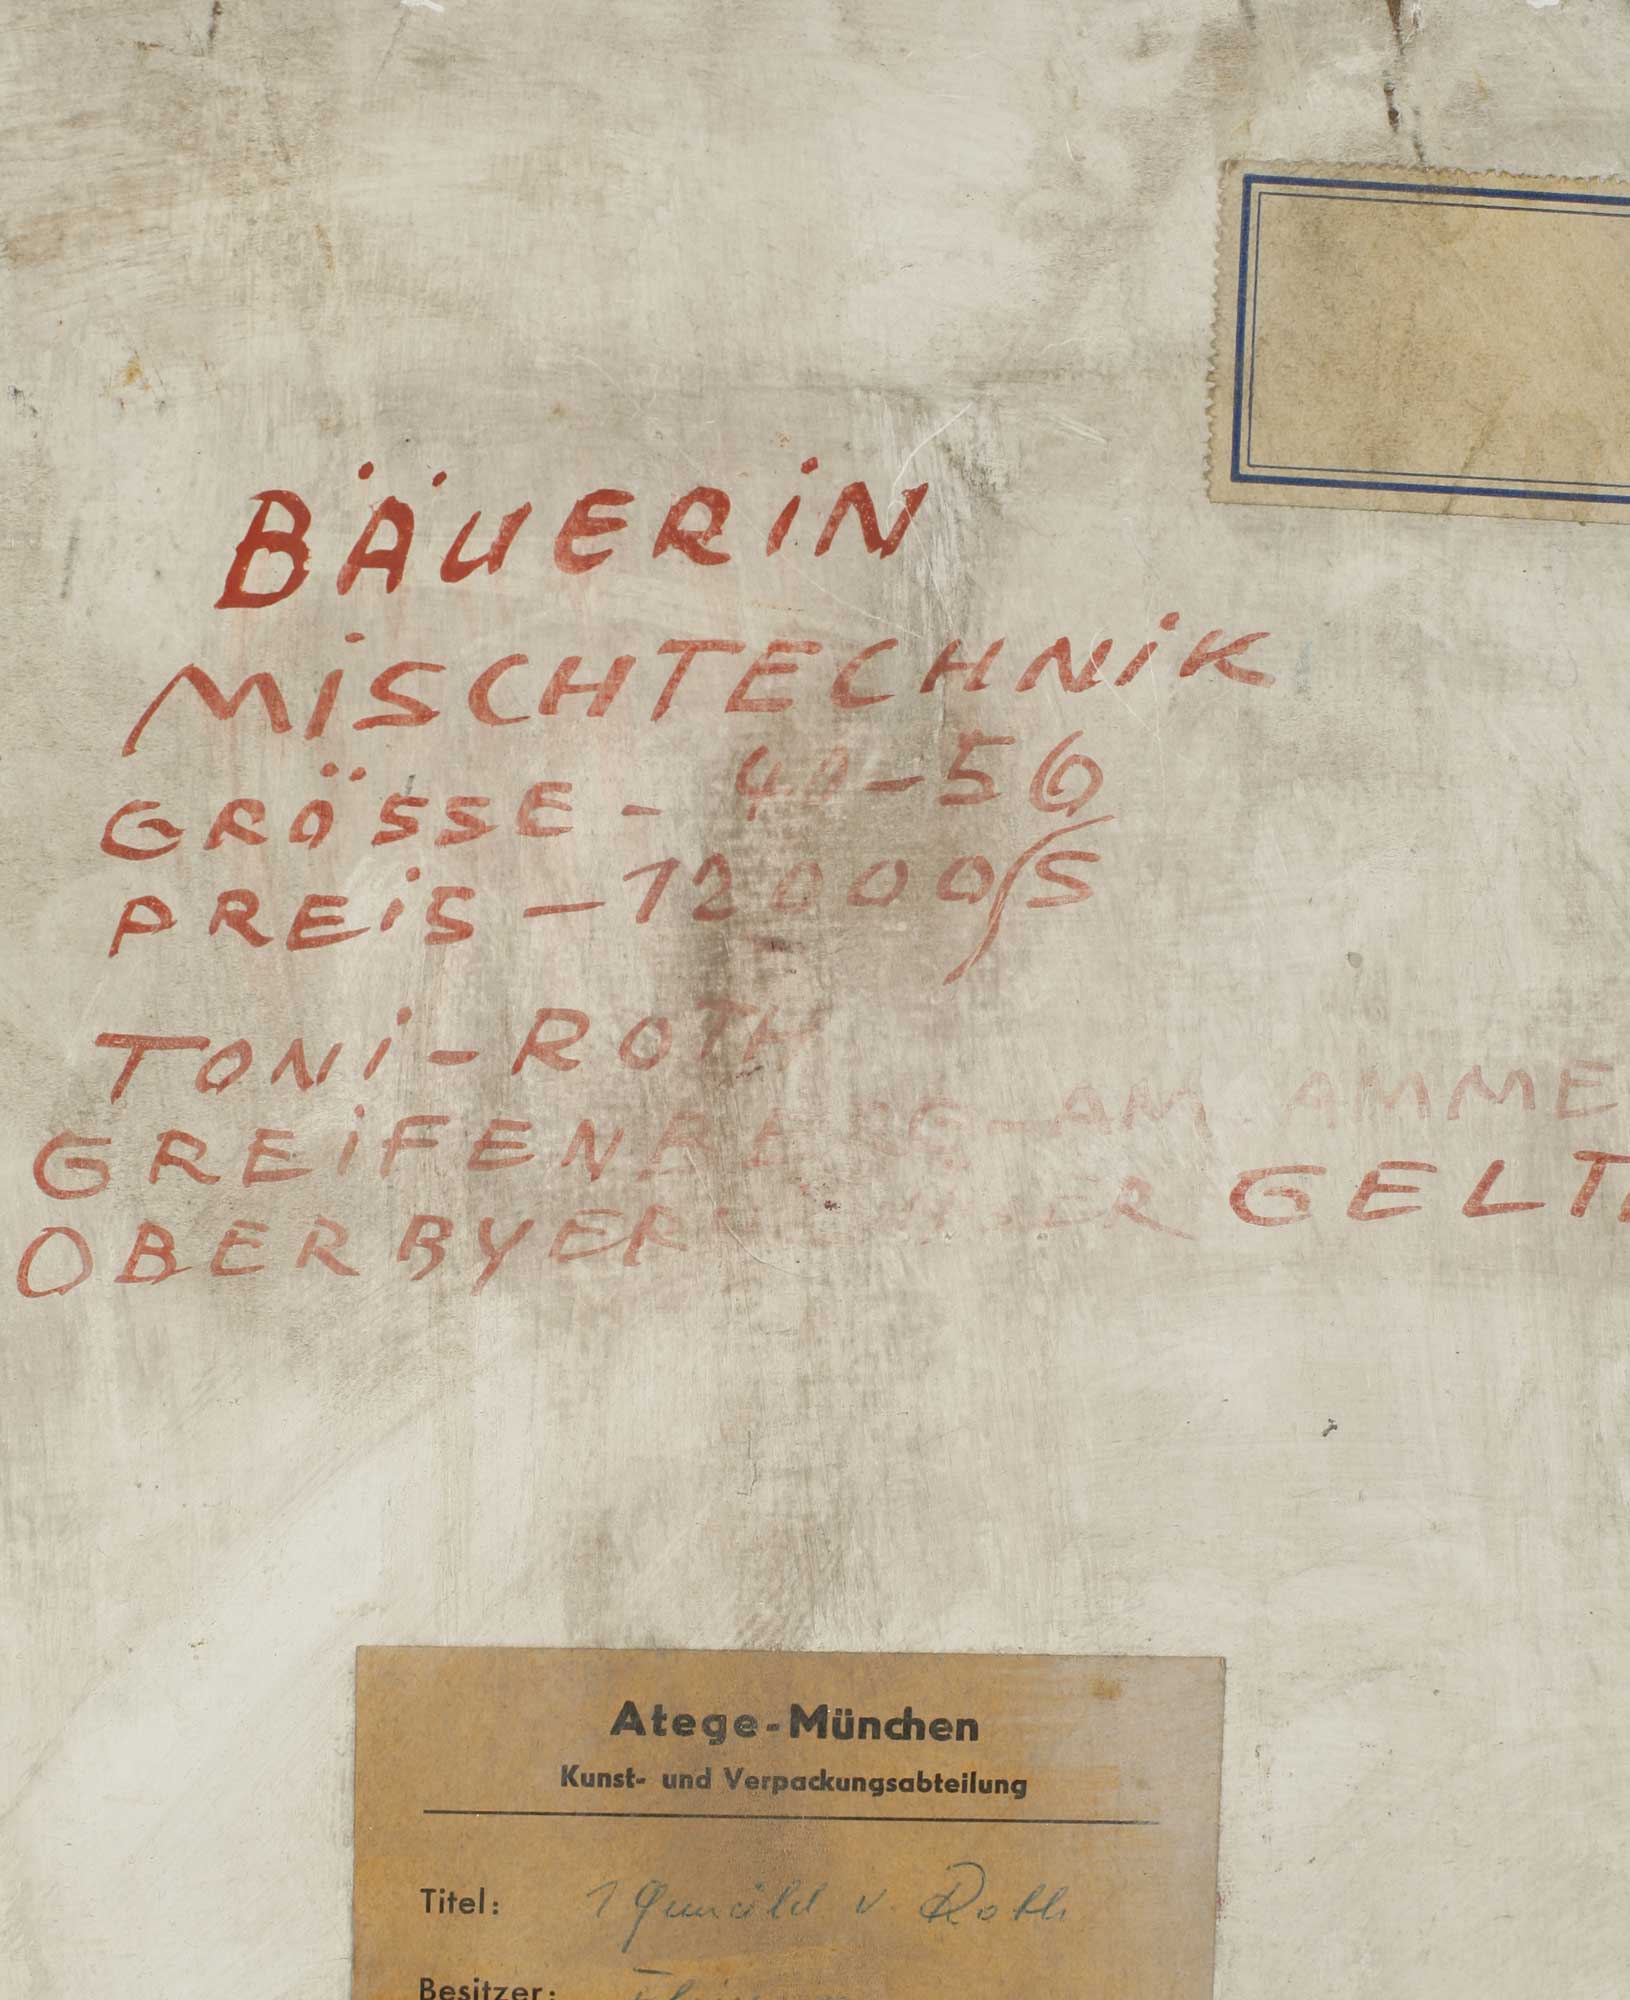 BÄUERIN
MISCHTECHNIK
GRÖSSE - 41-56
PREIS - 12000/S
TONI-ROTH
GREIFENBERG-AM AMME
OBERBYERN GELT
Atege-München
Kunst- und Verpackungsabteilung
Titel: 1 Gemäld v. Roth
Besitzer: